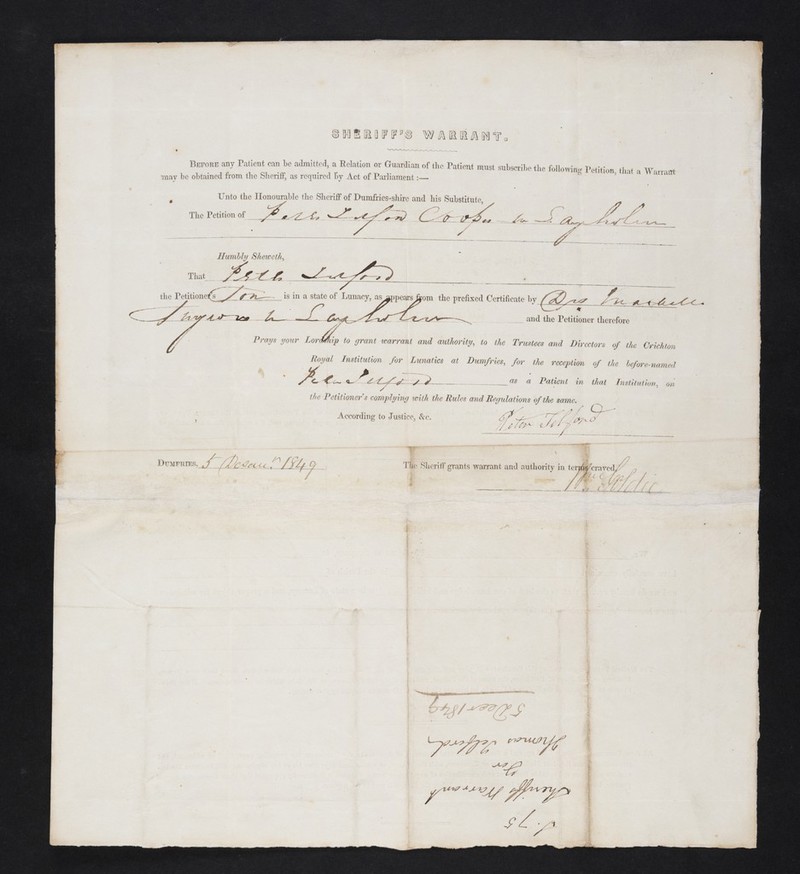 SHERIFF'S WARRANT.
BEFORE any Patient can be admitted, a Relation or Guardian of the Patient must subscribe the following Petition, that a Warrant
may be obtained from the Sheriff, as required by Act of Parliament :—
Unto the Honourable the Sheriff of Dumfries-shire and his Substitute,
The Petition of Peter Telford Cooper in Langholm
Humbly Sheweth,
That Peter Telford
the Petitioner's Son is in a state of Lunacy, as appears from the prefixed Certificate by Drs
in Langholm and the Petitioner therefore
Prays your Lordship to grant warrant and authority, to the Trustees and Directors of the Crichton
Royal Institution for Lunatics at Dumfries, for the reception of the before-named
Peter Telford as a Patient in that Institution, on
the Petitioner's complying with the Rules and Regulations of the same.
According to Justice, &c. Peter Telford
DUMFRIES, 5 1849 The Sheriff grants warrant and authority in terms craved.
Goldie
J. 75
Sheriffs Warrant
For
Thomas Telford
5 Decr 1849